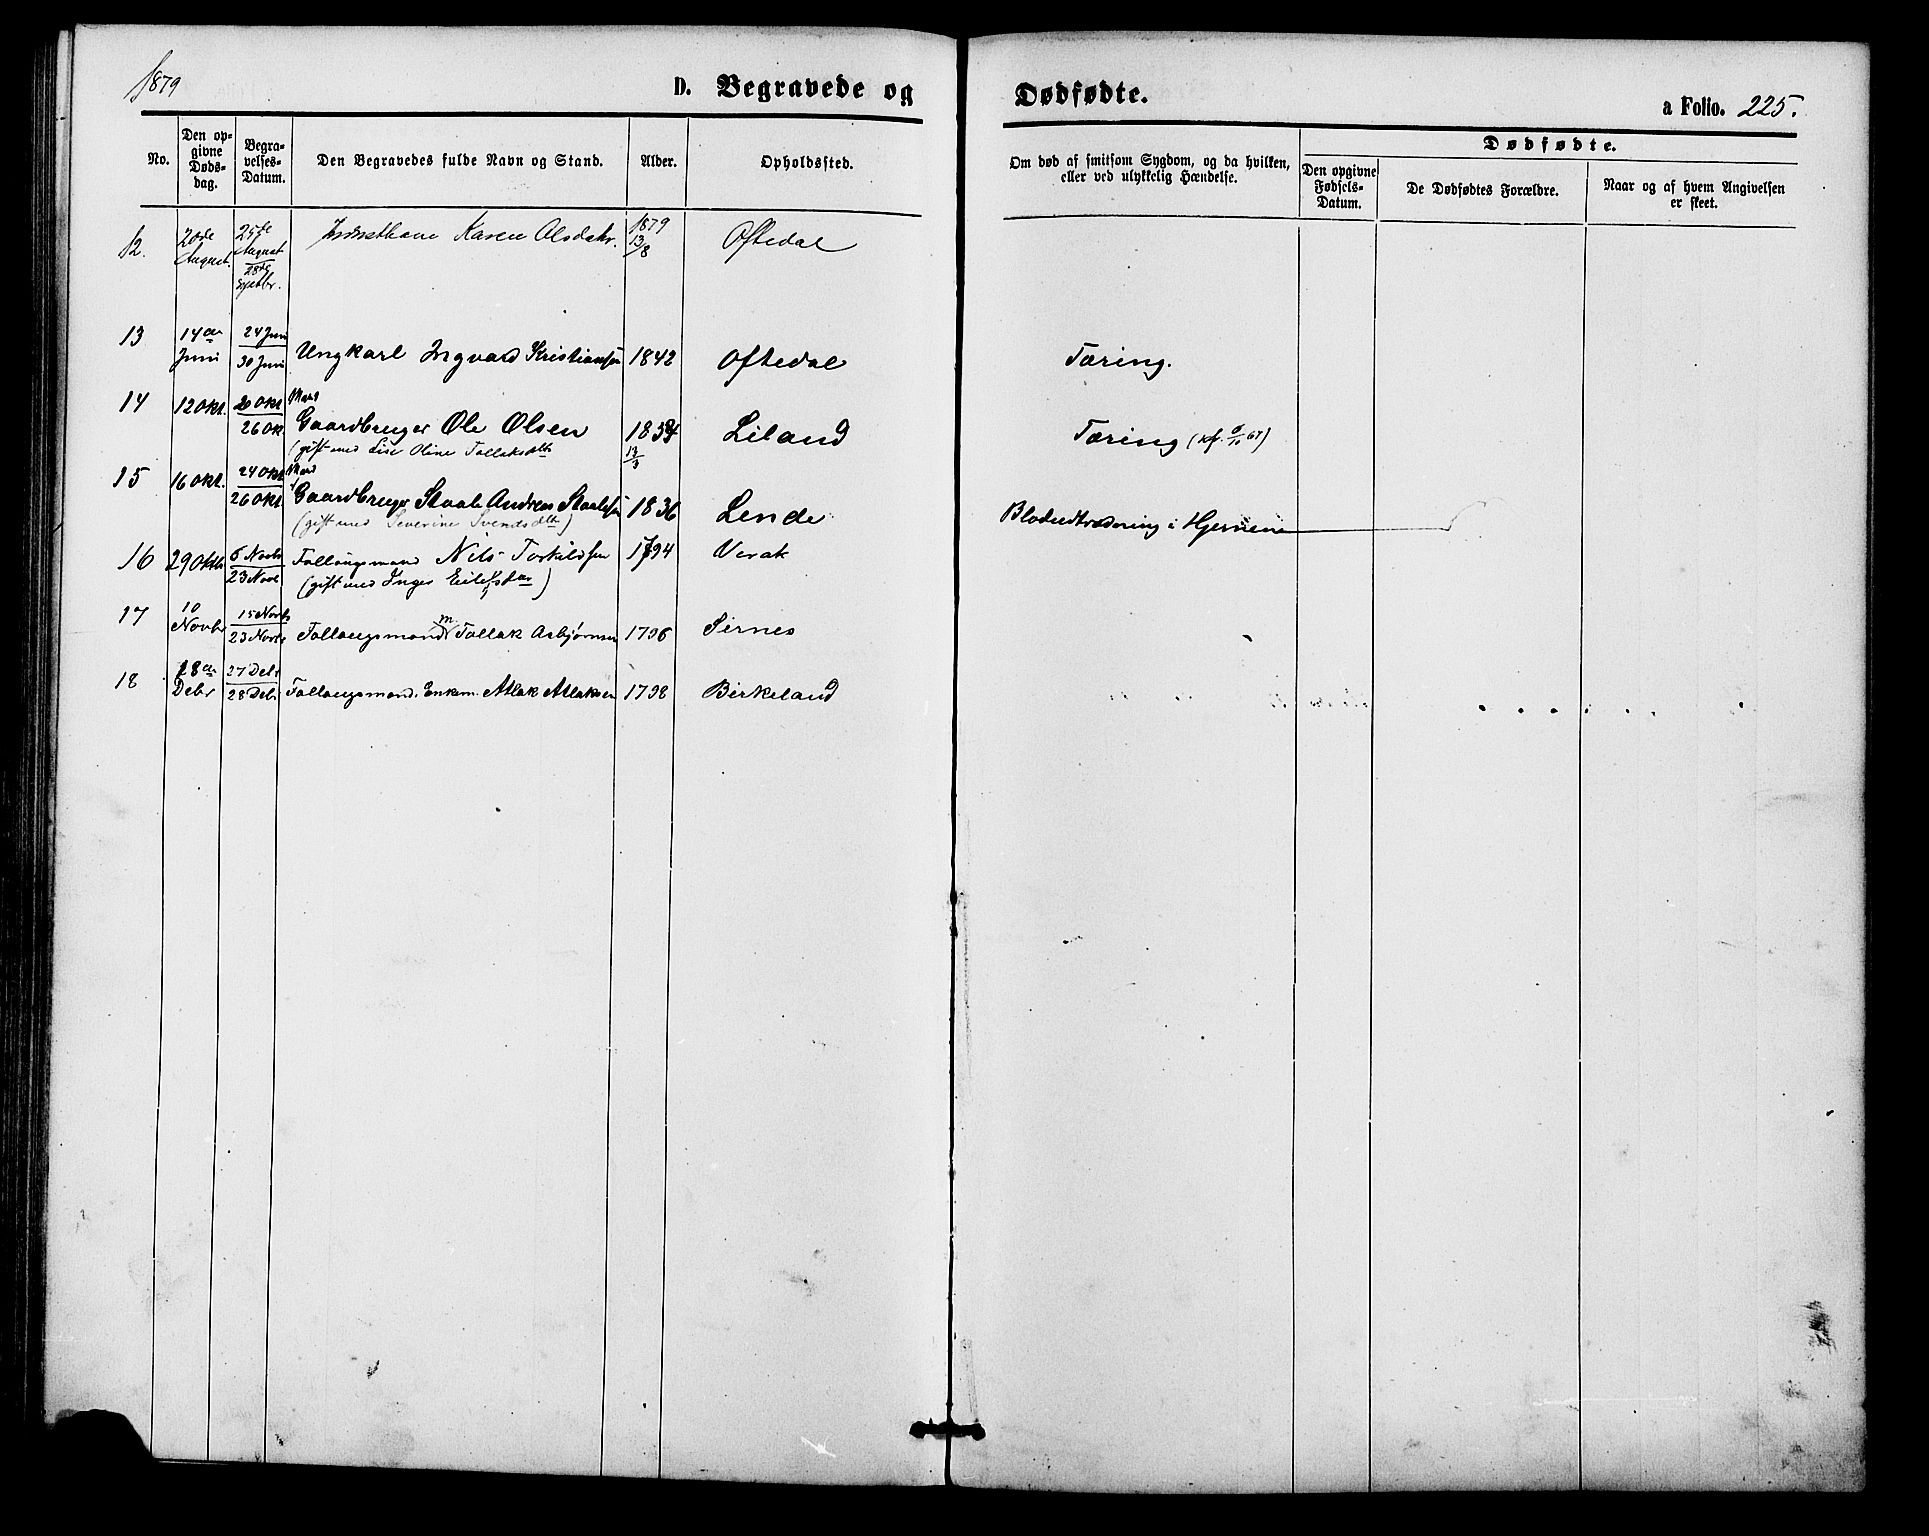 1879
D. Begravede og Dødfødte.
a Folio. 225.
No.
Den opgivne Døds-dag.
Begravelses-Datum.
Den Begravedes fulde Navn og Stand.
Alder.
Opholdssted.
Om død af smitsom Sygdom, og da hvilken, eller ved ulykkelig Hændelse.
Dødfødte.
Den opgivne Fødsels-Datum.
De Dødfødtes Forældre.
Naar og af hvem Angivelsen er skeet.
12. 20de August. 25de August 28de Septbr. Karen Olsdatr. 1879 13/8 Oftedal
13 14de Juni 24 Juni 30 Juni Ungkarl Ingvard Kristiansen 1842 Oftedal Tæring.
14 12 Okt. 20 Okt 26 Ok. Mand Gaardbruger Ole Olsen 13/3 Liland Tæring
(gift med Lise Oline Tollaksdtr
15 16 Okt. 24 Okt. 26 Okt. Mand Gaardbruger Staale Andreas Staalesen 1836 Lende Blodudtrædning i Hjernen
(gift med Severine Svendsdtr)
16 29 Oktb 6 Novbr 23 Novb Follaugsmand Nils Torkildsen 1794 Verak
(gift med Inger Eilefsdtr)
17 10 Novbr 15 Novbr 23 Novbr Follaugsmand Tollak Asbjørnsen 1796 Sirnes
18 18de Debr 27 Debr 28 Debr Follaugsmand. Enkem. Atlak Atlaksen 1798 Birkeland